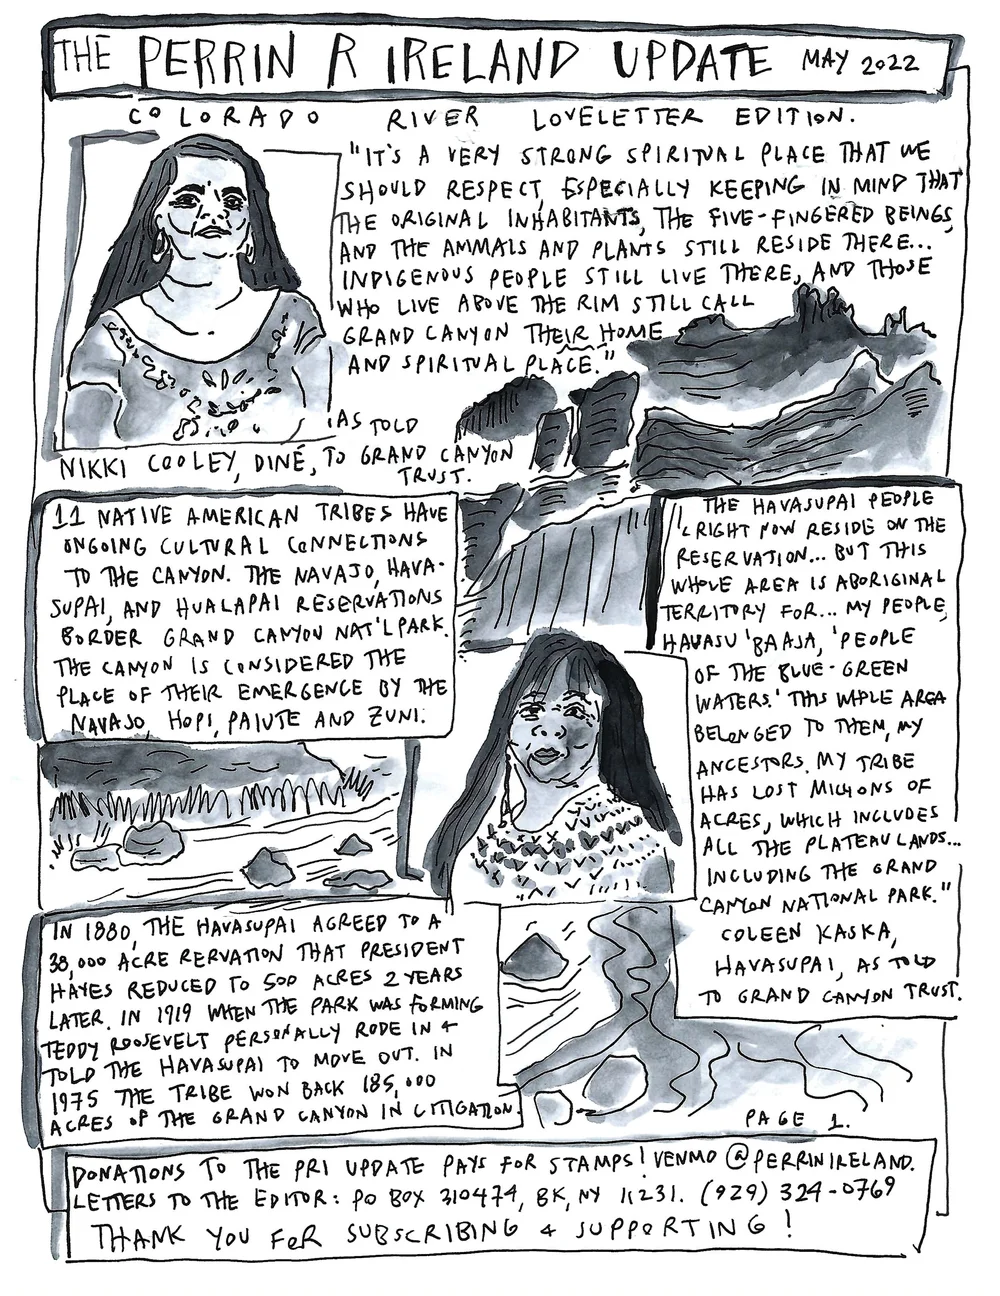 THE PERRIN R IRELAND UPDATE MAY 2022
COLORADO RIVER LOVELETTER EDITION.
"IT'S A VERY STRONG SPIRITUAL PLACE THAT WE
SHOULD RESPECT, ESPECIALLY KEEPING IN MIND THAT
THE ORIGINAL INHABITANTS, THE FIVE-FINGERED BEINGS,
AND THE ANIMALS AND PLANTS STILL RESIDE THERE...
INDIGENOUS PEOPLE STILL LIVE THERE, AND THOSE
WHO LIVE ABOVE THE RIM STILL CALL
GRAND CANYON THEIR HOME
AND SPIRITUAL PLACE."
AS TOLD
NIKKI COOLEY, DINÉ, TO GRAND CANYON
TRUST.
11 NATIVE AMERICAN TRIBES HAVE
ONGOING CULTURAL CONNECTIONS
TO THE CANYON. THE NAVAJO, HAVA-
SUPAI, AND HUALAPAI RESERVATIONS
BORDER GRAND CANYON NAT'L PARK.
THE CANYON IS CONSIDERED THE
PLACE OF THEIR EMERGENCE BY THE
NAVAJO, HOPI, PAIUTE AND ZUNI.
"THE HAVASUPAI PEOPLE
RIGHT NOW RESIDE ON THE
RESERVATION... BUT THIS
WHOLE AREA IS ABORIGINAL
TERRITORY FOR... MY PEOPLE,
HAVASU 'BAAJA, 'PEOPLE
OF THE BLUE-GREEN
WATERS.' THIS WHOLE AREA
BELONGED TO THEM, MY
ANCESTORS. MY TRIBE
HAS LOST MILLIONS OF
ACRES, WHICH INCLUDES
ALL THE PLATEAU LANDS...
INCLUDING THE GRAND
CANYON NATIONAL PARK."
COLEEN KASKA,
HAVASUPAI, AS TOLD
TO GRAND CANYON TRUST.
IN 1880, THE HAVASUPAI AGREED TO A
38,000 ACRE RERVATION THAT PRESIDENT
HAYES REDUCED TO 500 ACRES 2 YEARS
LATER. IN 1919 WHEN THE PARK WAS FORMING
TEDDY ROOSEVELT PERSONALLY RODE IN +
TOLD THE HAVASUPAI TO MOVE OUT. IN
1975 THE TRIBE WON BACK 185,000
ACRES OF THE GRAND CANYON IN LITIGATION.
PAGE 1.
DONATIONS TO THE PRI UPDATE PAYS FOR STAMPS! VENMO @PERRINIRELAND.
LETTERS TO THE EDITOR: PO BOX 310474, BK, NY 11231. (929) 324-0769
THANK YOU FOR SUBSCRIBING + SUPPORTING!